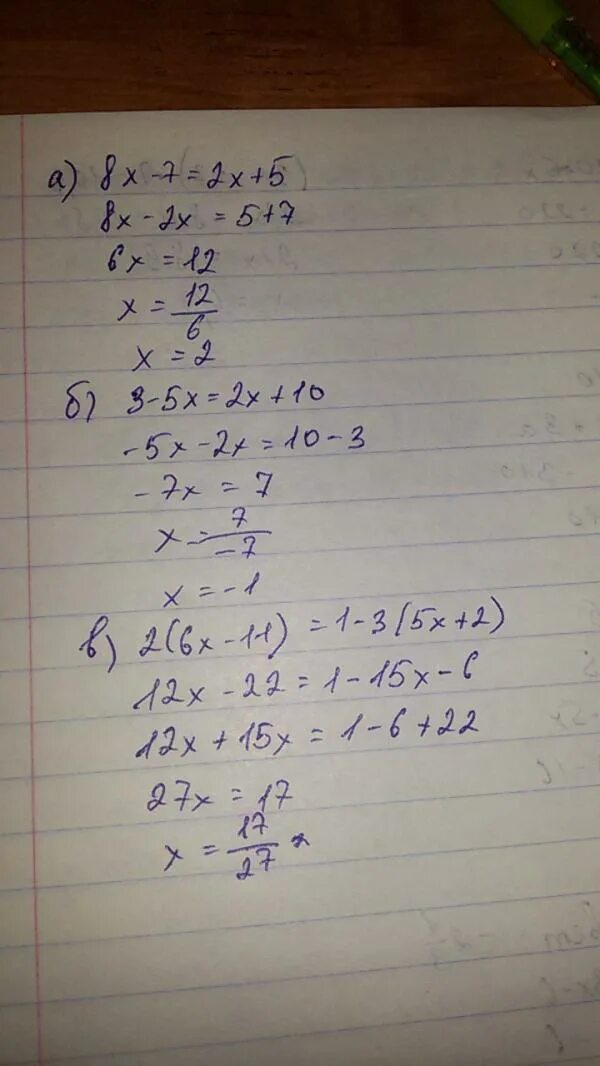 а) 8x-7=2x+5
8x-2x=5+7
6x=12
x=12/6
x=2
б) 3-5x=2x+10
-5x-2x=10-3
-7x=7
x=7/-7
x=-1
в) 2(6x-11)=1-3(5x+2)
12x-22=1-15x-6
12x+15x=1-6+22
27x=17
x=17/27